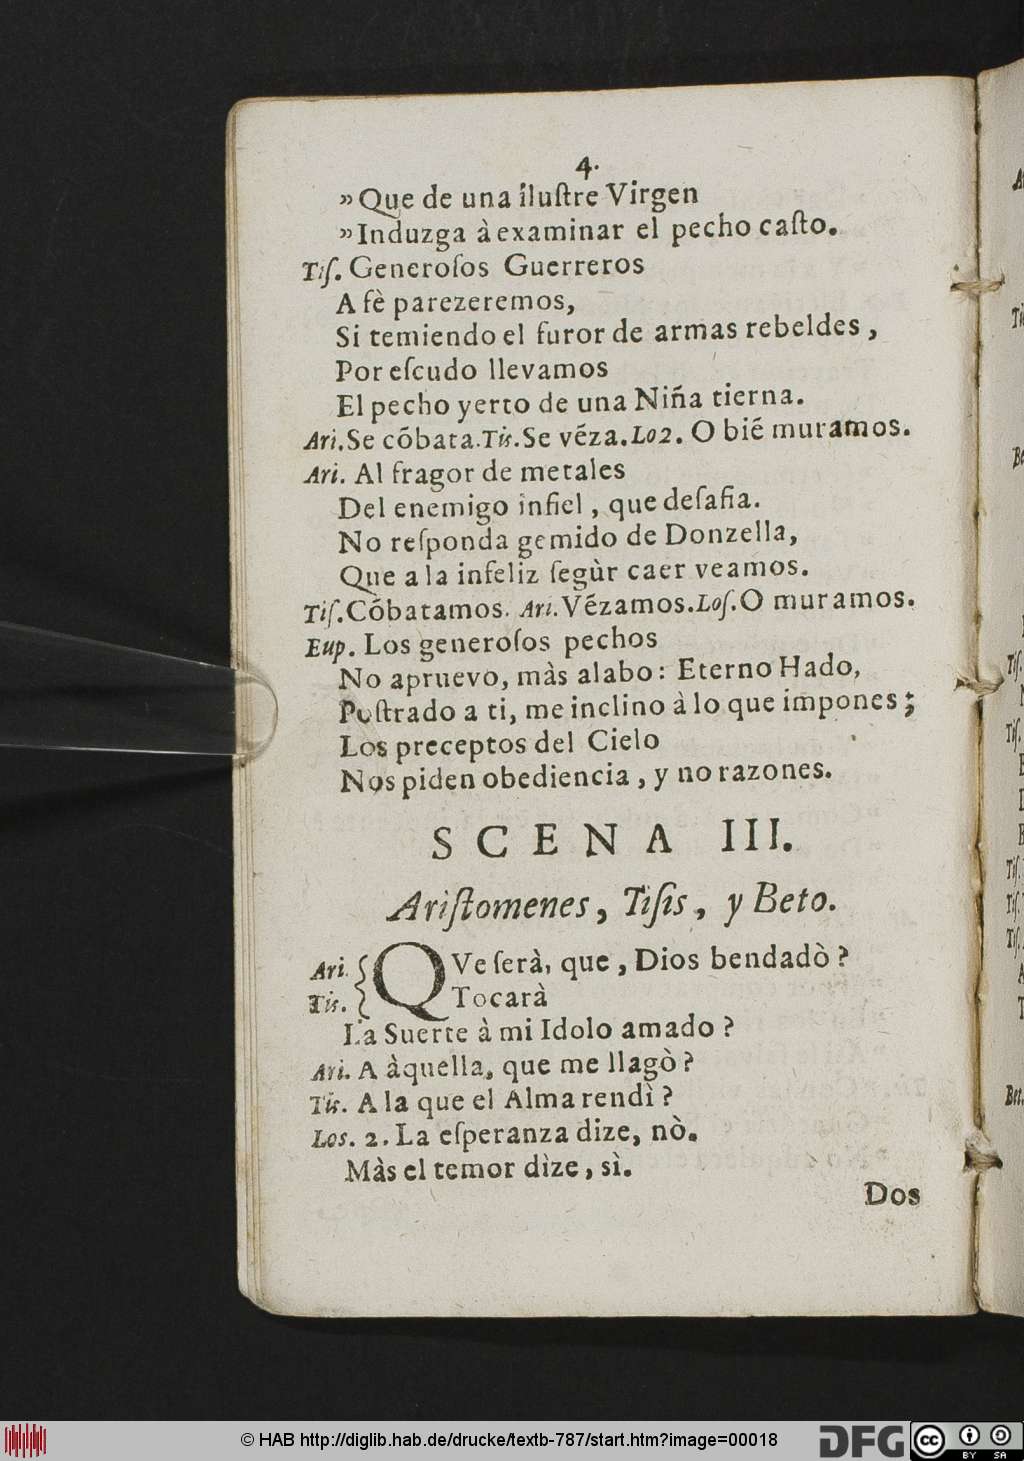 4.
” Que de una iluſtre Virgen
” Induzga à examinar el pecho caſto.
Tiſ. Generoſos Guerreros
A fè parezeremos,
Si temiendo el furor de armas rebeldes,
Por eſcudo llevamos
El pecho yerto de una Niña tierna.
Ari. Se cõbata. Tis. Se vẽza. Lo 2. O biẽ muramos.
Ari. Al fragor de metales
Del enemigo infiel, que deſafia.
No reſponda gemido de Donzella,
Que a la infeliz ſegùr caer veamos.
Tiſ. Cõbatamos. Ari. Vẽzamos. Loſ. O muramos.
Eup. Los generoſos pechos
No apruevo, màs alabo: Eterno Hado,
Poſtrado a ti, me inclino à lo que impones;
Los preceptos del Cielo
Nos piden obediencia, y no razones.
SCENA III.
Ariſtomenes, Tiſis, y Beto.
Ari. QVe ſerà, que, Dios bendadò?
Tis. Tocarà
La Suerte à mi Idolo amado?
Ari. A àquella, que me llagò?
Tis. A la que el Alma rendì?
Los. 2. La eſperanza dize, nò.
Màs el temor dìze, sì.
Dos
© HAB http://diglib.hab.de/drucke/textb-787/start.htm?image=00018
DFG
cc BY SA